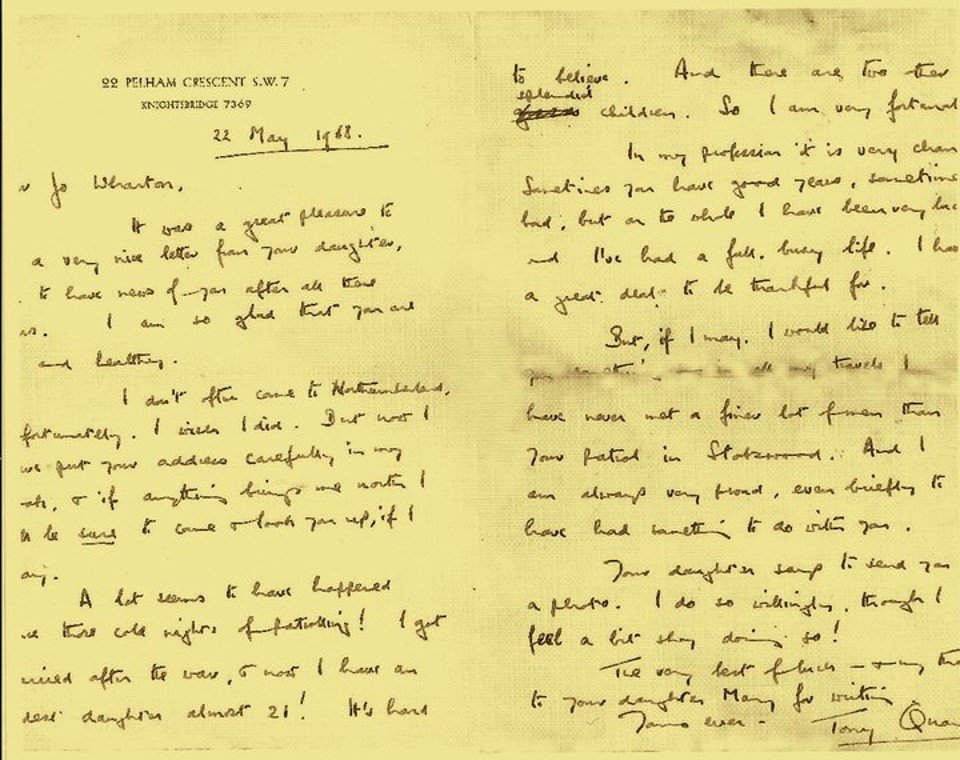 22 PELHAM CRESCENT S.W.7
KNIGHTSBRIDGE 7369
22 May 1968.
Jo Wharton,
It was a great pleasure to
a very nice letter from your daughter,
to have news of you after all these
I am so glad that you are
and healthy.
I don't often come to Northumberland,
fortunately. I wish I did. But now I
put your address carefully in my
& if anything brings me north I
be sure to come & look you up, if I
A lot seems to have happened
those cold nights of patrolling! I got
after the war, & now I have an
daughter almost 21! It's hard
to believe. And there are two other
splendid
children. So I am very
In my profession it is very
Sometimes you have good years,
bad, but on the whole I have been very
and I've had a full, busy life. I
a great deal to be thankful for.
But, if I may, I would like to tell
in all my travels I
have never met a finer lot of men than
your patrol in Stobswood. And I
am always very proud, even briefly to
have had something to do with you.
Your daughter says to send you
a photo. I do so willingly, though I
feel a bit shy doing so!
The very best of luck — & my
to your daughter Mary for writing
Yours ever -
Tony